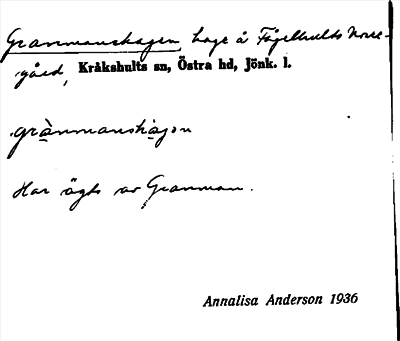 Granmanshagen, hage å Fågelhults Norre-
gård, Kråkshults sn, Östra hd, Jönk. l.
grànmanshagɜn
Har ägts av Granman.
Annalisa Anderson 1936